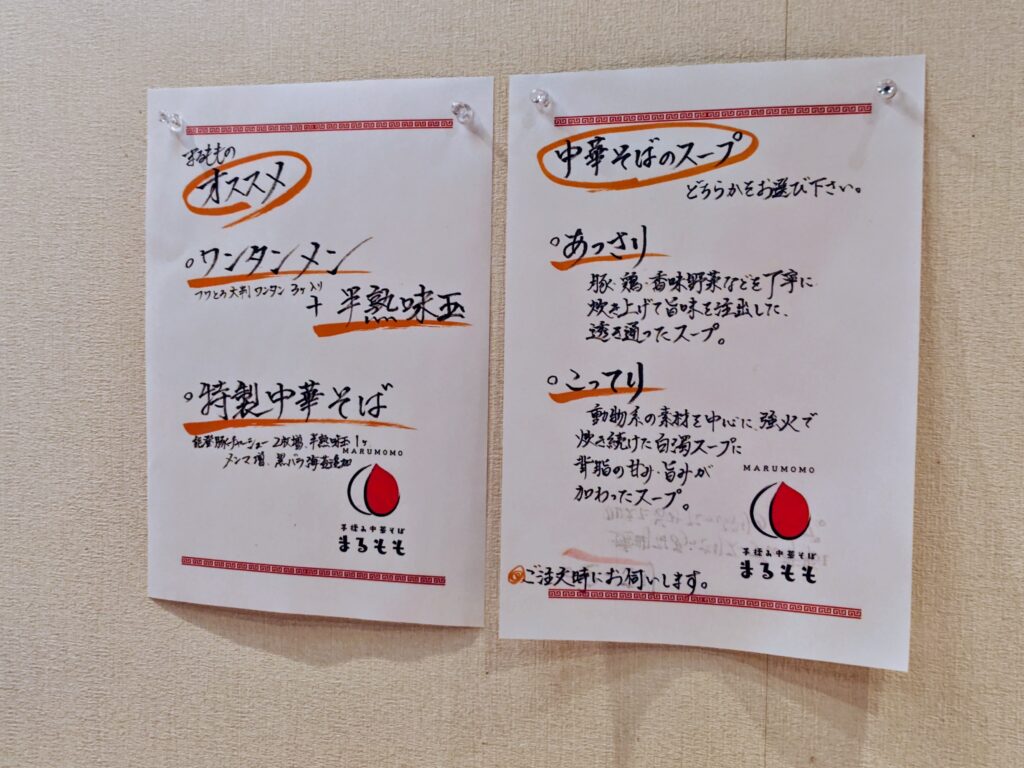 まるももの
オススメ
○ワンタンメン
フワとろ大判ワンタン 3ヶ入り
+ 半熟味玉
○特製中華そば
能登豚チャーシュー2枚増、半熟味玉1ヶ
メンマ増、黒バラ海苔追加
MARUMOMO
手揉み中華そば
まるもも
中華そばのスープ
どちらかをお選び下さい。
○あっさり
豚・鶏・香味野菜などを丁寧に
炊き上げて旨味を注出した、
透き通ったスープ。
○こってり
動物系の素材を中心に、強火で
炊き続けた白濁スープに
背脂の甘み・旨みが
加わったスープ。
MARUMOMO
手揉み中華そば
まるもも
◎ご注文時にお伺いします。